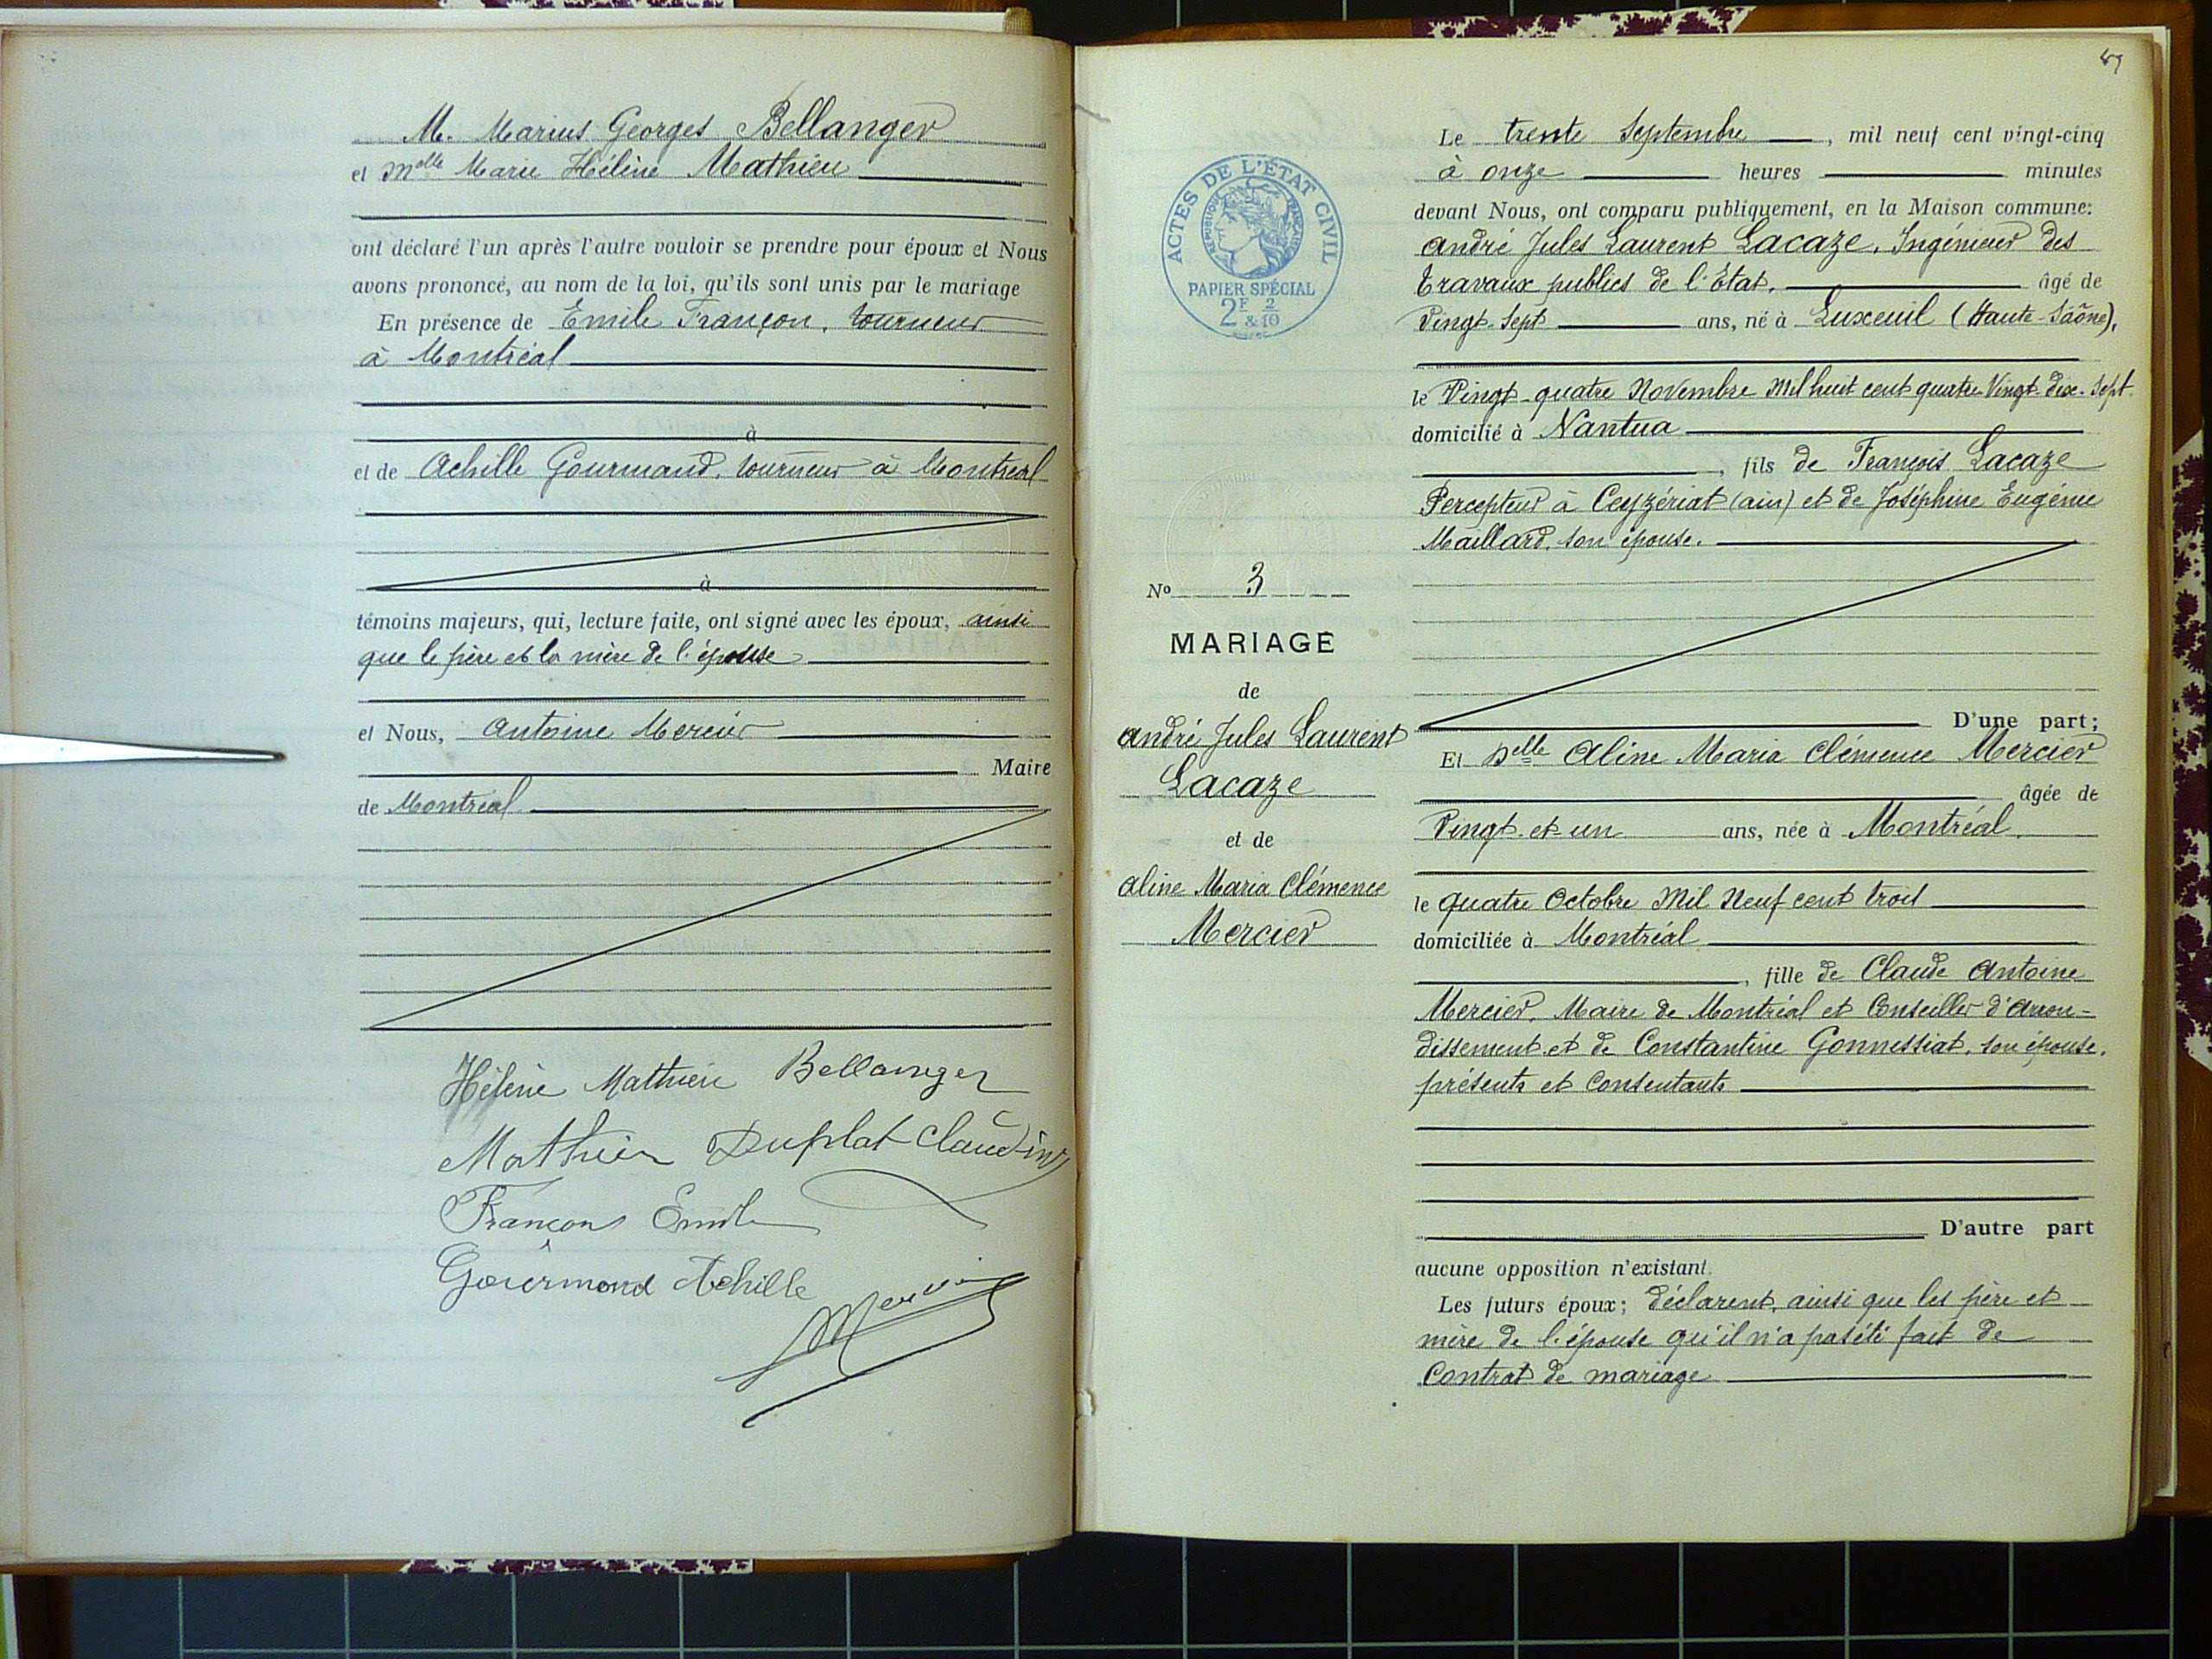 M. Marius Georges Bellanger
et Melle Marie Hélène Mathieu
ont déclaré l'un après l'autre vouloir se prendre pour époux et Nous
avons prononcé, au nom de la loi, qu'ils sont unis par le mariage
En présence de Emile Françon, tourneur
à Montréal
à
et de Achille Gourmand, tourneur à Montréal
à
témoins majeurs, qui, lecture faite, ont signé avec les époux, ainsi
que le père et la mère de l'épouse
et Nous, Antoine Mercier
Maire
de Montréal
Hélène Mathieu Bellanger
Mathieu Duplat Claudine
Françon Emile
Gourmand Achille
Mercier
Le trente Septembre, mil neuf cent vingt-cinq
à onze heures minutes
devant Nous, ont comparu publiquement, en la Maison commune:
André Jules Laurent Lacaze, Ingénieur des
travaux publics de l'Etat, âgé de
Vingt-Sept ans, né à Luxeuil (Haute-Sâone),
le Vingt-quatre Novembre Mil huit cent quatre Vingt-dix-Sept
domicilié à Nantua
, fils de François Lacaze
Percepteur à Ceyzériat (ain) et de Joséphine Eugénie
Maillard, son épouse.
D'une part;
Et Delle Aline Maria Clémence Mercier
âgée de
Vingt et un ans, née à Montréal
le quatre Octobre Mil Neuf cent trois
domiciliée à Montréal
, fille de Claude Antoine
Mercier, Maire de Montréal et Conseiller d'Arron-
dissement et de Constantine Gonnessiat, son épouse,
présents et consentants
D'autre part
aucune opposition n'existant.
Les futurs époux; déclarent, ainsi que les père et
mère de l'épouse qu'il n'a pas été fait de
Contrat de mariage
ACTES DE L'ÉTAT CIVIL
RÉPUBLIQUE FRANÇAISE
PAPIER SPÉCIAL
2F & 2/10
No 3
MARIAGE
de
André Jules Laurent
Lacaze
et de
Aline Maria Clémence
Mercier